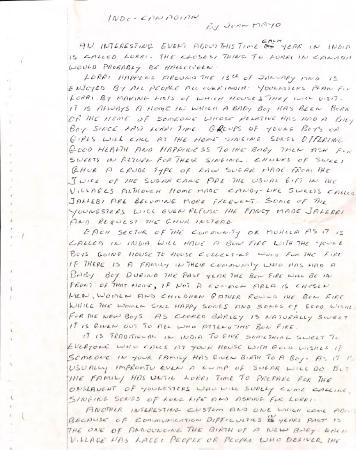 INDO-CANADIAN
By JOHN MAYO
AN INTERESTING EVENT ABOUT THIS TIME OF EACH YEAR IN INDIA
IS CALLED LORRI. THE CLOSEST THING TO LORRI IN CANADA
WOULD PROBABLY BE HALLOWEEN.
LORRI HAPPENS AROUND THE 13TH OF JANUARY AND IS
ENJOYED BY ALL PEOPLE ALL OVER INDIA. YOUNGSTERS PLAN FOR
LORRI BY MAKING LISTS OF WHICH HOUSES THEY WILL VISIT.
IT IS ALWAYS A HOME IN WHICH A BABY BOY HAS BEEN BORN
OR THE HOME OF SOMEONE WHOSE RELATIVE HAS HAD A BABY
BOY SINCE LAST LORRI TIME. GROUPS OF YOUNG BOYS OR
GIRLS WILL CALL AT THE HOME SINGING SONGS OFFERING
GOOD HEALTH AND HAPPINESS TO THE BABY THEN ASK FOR
SWEETS IN RETURN FOR THEIR SINGING. CHUNKS OF SWEET
GHUR A CRUDE TYPE OF RAW SUGAR MADE FROM THE
JUICE OF THE SUGAR CANE ARE THE USUAL GIFT IN THE
VILLAGES ALTHOUGH HOME MADE CANDY-LIKE SWEETS CALLED
JALLEBI ARE BECOMING MORE FREQUENT. SOME OF THE
YOUNGSTERS WILL EVEN REFUSE THE FANCY MADE JALLEBI
AND REQUEST THE GHUR INSTEAD.
EACH SECTOR OF THE COMMUNITY OR MOHILA AS IT IS
CALLED IN INDIA WILL HAVE A BON FIRE WITH THE YOUNG
BOYS GOING HOUSE TO HOUSE COLLECTING WOOD FOR THE FIRE
IF THERE IS A FAMILY IN THEIR COMMUNITY WHO HAS HAD A
BABY BOY DURING THE PAST YEAR THE BON FIRE WILL BE IN
FRONT OF THAT HOME, IF NOT A COMMON AREA IS CHOSEN
MEN, WOMEN AND CHILDREN GATHER ROUND THE BON FIRE
WHILE THE WOMEN SING HAPPY SONGS AND SONGS OF GOOD WISHES
FOR THE NEW BOYS AS COOKED BARLEY IS NATURALLY SWEET
IT IS GIVEN OUT TO ALL WHO ATTEND THE BON FIRE.
IT IS TRADITIONAL IN INDIA TO GIVE SOMETHING SWEET TO
EVERYONE WHO CALLS AT YOUR HOUSE WITH GOOD WISHES IF
SOMEONE IN YOUR FAMILY HAS GIVEN BIRTH TO A BOY. AS IT IS
USUALLY IMPROMTU EVEN A LUMP OF SUGAR WILL DO BUT
THE FAMILY HAS UNTIL LORRI TIME TO PREPARE FOR THE
ONSLAUGHT OF YOUNGSTERS WHO WILL SURELY COME CALLING
SINGING SONGS OF LONG LIFE AND ASKING FOR LORRI.
ANOTHER INTERESTING CUSTOM AND ONE WHICH CAME ABOUT
BECAUSE OF COMMUNICATION DIFFICULTIES IN YEARS PAST IS
THE ONE OF ANNOUNCING THE BIRTH OF A NEW BABY. EACH
VILLAGE HAS PEOPLE OR PEOPLE WHO DELIVER THE